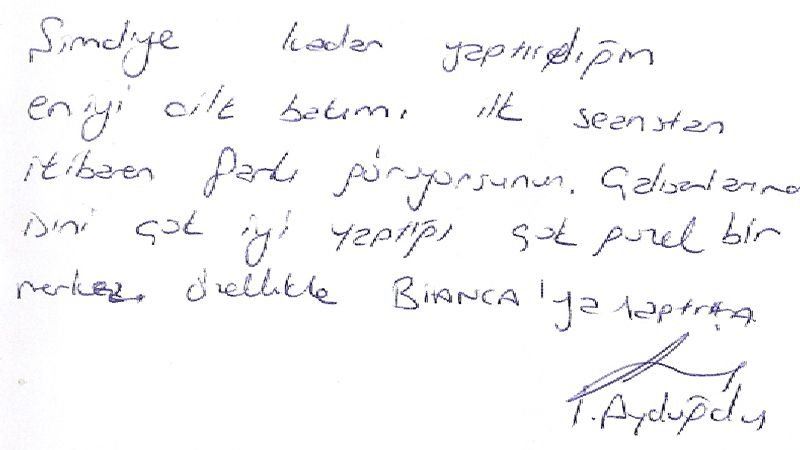 Şimdiye kadar yaptırdığım
en iyi cilt bakımı. ilk seanstan
itibaren farkı görüyorsunuz. Çalışanlarının
işini çok iyi yaptığı çok güzel bir
merkez. özellikle BİANCA'ya
T. Aydoğdu